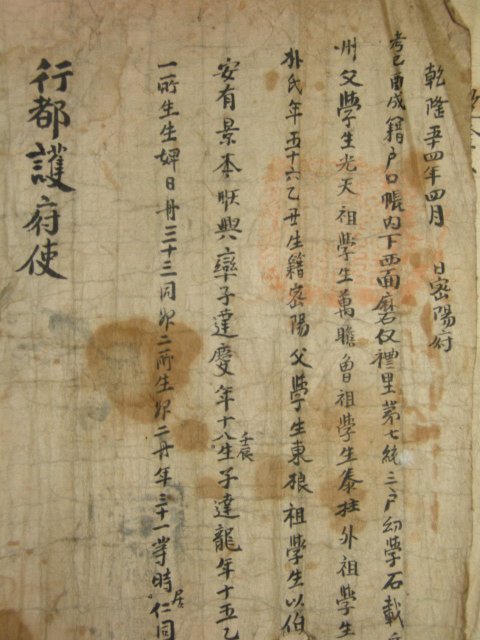 乾隆五十四年四月 日密陽府
考己酉成籍戶口帳內下西面 仅禮里第七統三戶幼學石載
州父學生光天祖學生萬瞻曾祖學生泰柱外祖學生
朴氏年五十六乙丑生籍密陽父學生東 祖學生以伯
安有景本順興 子達慶年十八壬辰生子達龍年十五乙
一所生生婢日丹三十三同婢二所生婢二丹年三十一等時居仁同
行都護府使